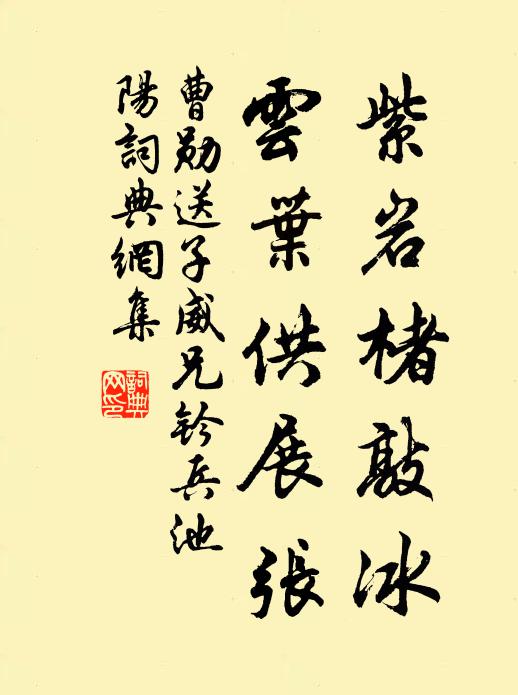 紫岩楮敲冰
雲葉供展張
曹勛送子威兄鈐兵池
陽詞典網集
詞典网印